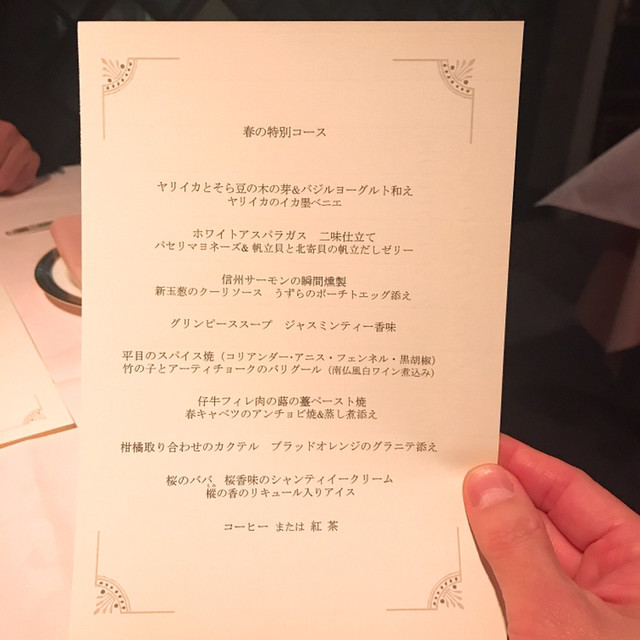 春の特別コース
ヤリイカとそら豆の木の芽&バジルヨーグルト和え
ヤリイカのイカ墨ベニエ
ホワイトアスパラガス 二味仕立て
パセリマヨネーズ& 帆立貝と北寄貝の帆立だしゼリー
信州サーモンの瞬間燻製
新玉葱のクーリソース うずらのポーチトエッグ添え
グリンピーススープ ジャスミンティー香味
平目のスパイス焼（コリアンダー・アニス・フェンネル・黒胡椒）
竹の子とアーティチョークのバリグール（南仏風白ワイン煮込み）
仔牛フィレ肉の蕗の薹ペースト焼
春キャベツのアンチョビ焼&蒸し煮添え
柑橘取り合わせのカクテル ブラッドオレンジのグラニテ添え
桜のババ 桜香味のシャンティイークリーム
樅の香のリキュール入りアイス
コーヒー または 紅 茶